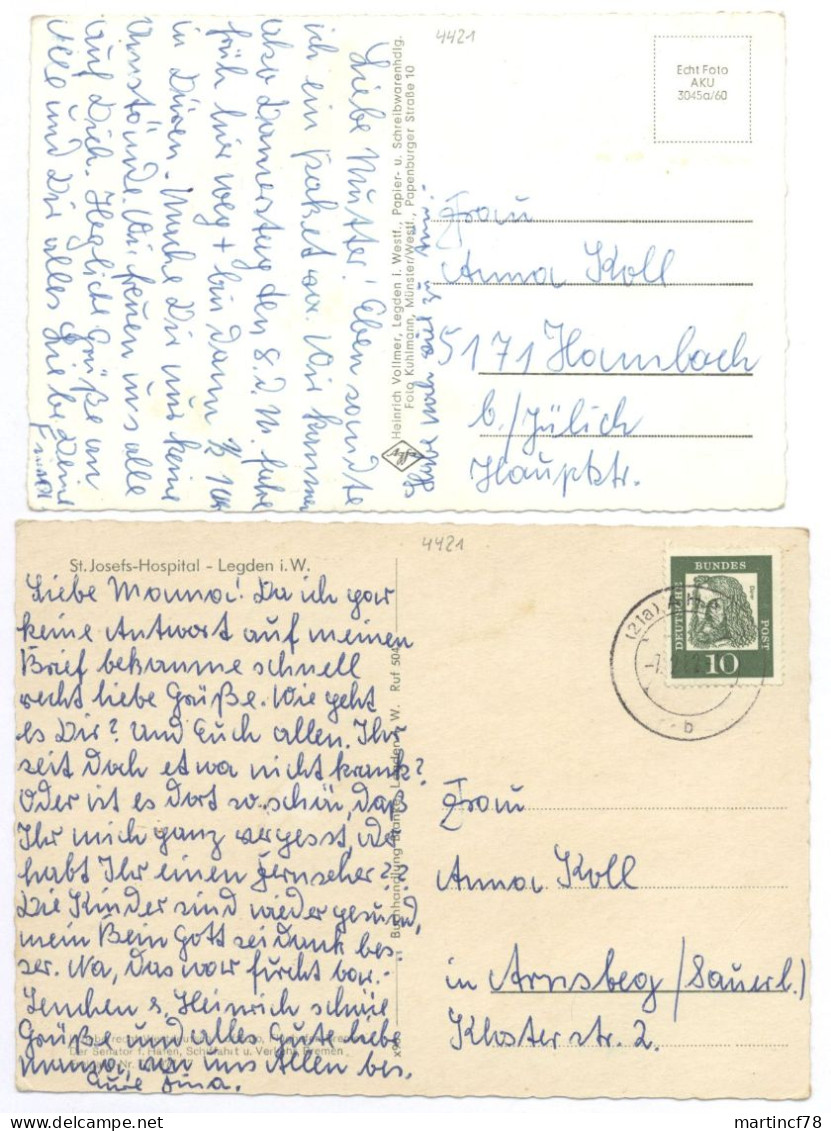 4421
Echt Foto
AKU
3045a/60
Liebe Mutter! Eben sandte
ich ein Paket an. Wir kommen
also Donnerstag den 8. d. M. fahre
früh hier weg + bin dann
in Düren. Mache Dir nur keine
Umstände. Wir freuen uns alle
auf Dich. Herzliche Grüße an
alle und Dir alles Liebe Deine
Heinrich Vollmer, Legden i. Westf., Papier- u. Schreibwarenhdlg.
Foto Kuhlmann, Münster/Westf., Papenburger Straße 10
Frau
Anna Koll
5171 Hambach
b/Jülich
Hauptstr.
4421
St. Josefs-Hospital - Legden i. W.
Liebe Mama! Da ich gar
keine Antwort auf meinen
Brief bekamme schnell
recht liebe Grüße. Wie geht
es Dir? Und Euch allen. Ihr
seid doch etwa nicht krank?
Oder ist es dort so schön, daß
Ihr mich ganz vergesst, oder
habt Ihr einen Fernseher??
Die Kinder sind wieder gesund,
mein Bein Gott sei dank bes-
ser. Na, das war furchtbar.-
Lenchen & Heinrich schöne
Grüße und alles Gute liebe
Mama, von uns Allen bes.
Eure
Der Senator f. Häfen, Schiffahrt u. Verkehr, Bremen
Buchhandlung Legden i. W. Ruf 504
DEUTSCHE
BUNDES
POST
10
(21a)
b
Frau
Anna Koll
in Arnsberg/Sauerl.)
Klosterstr. 2.
martincf78